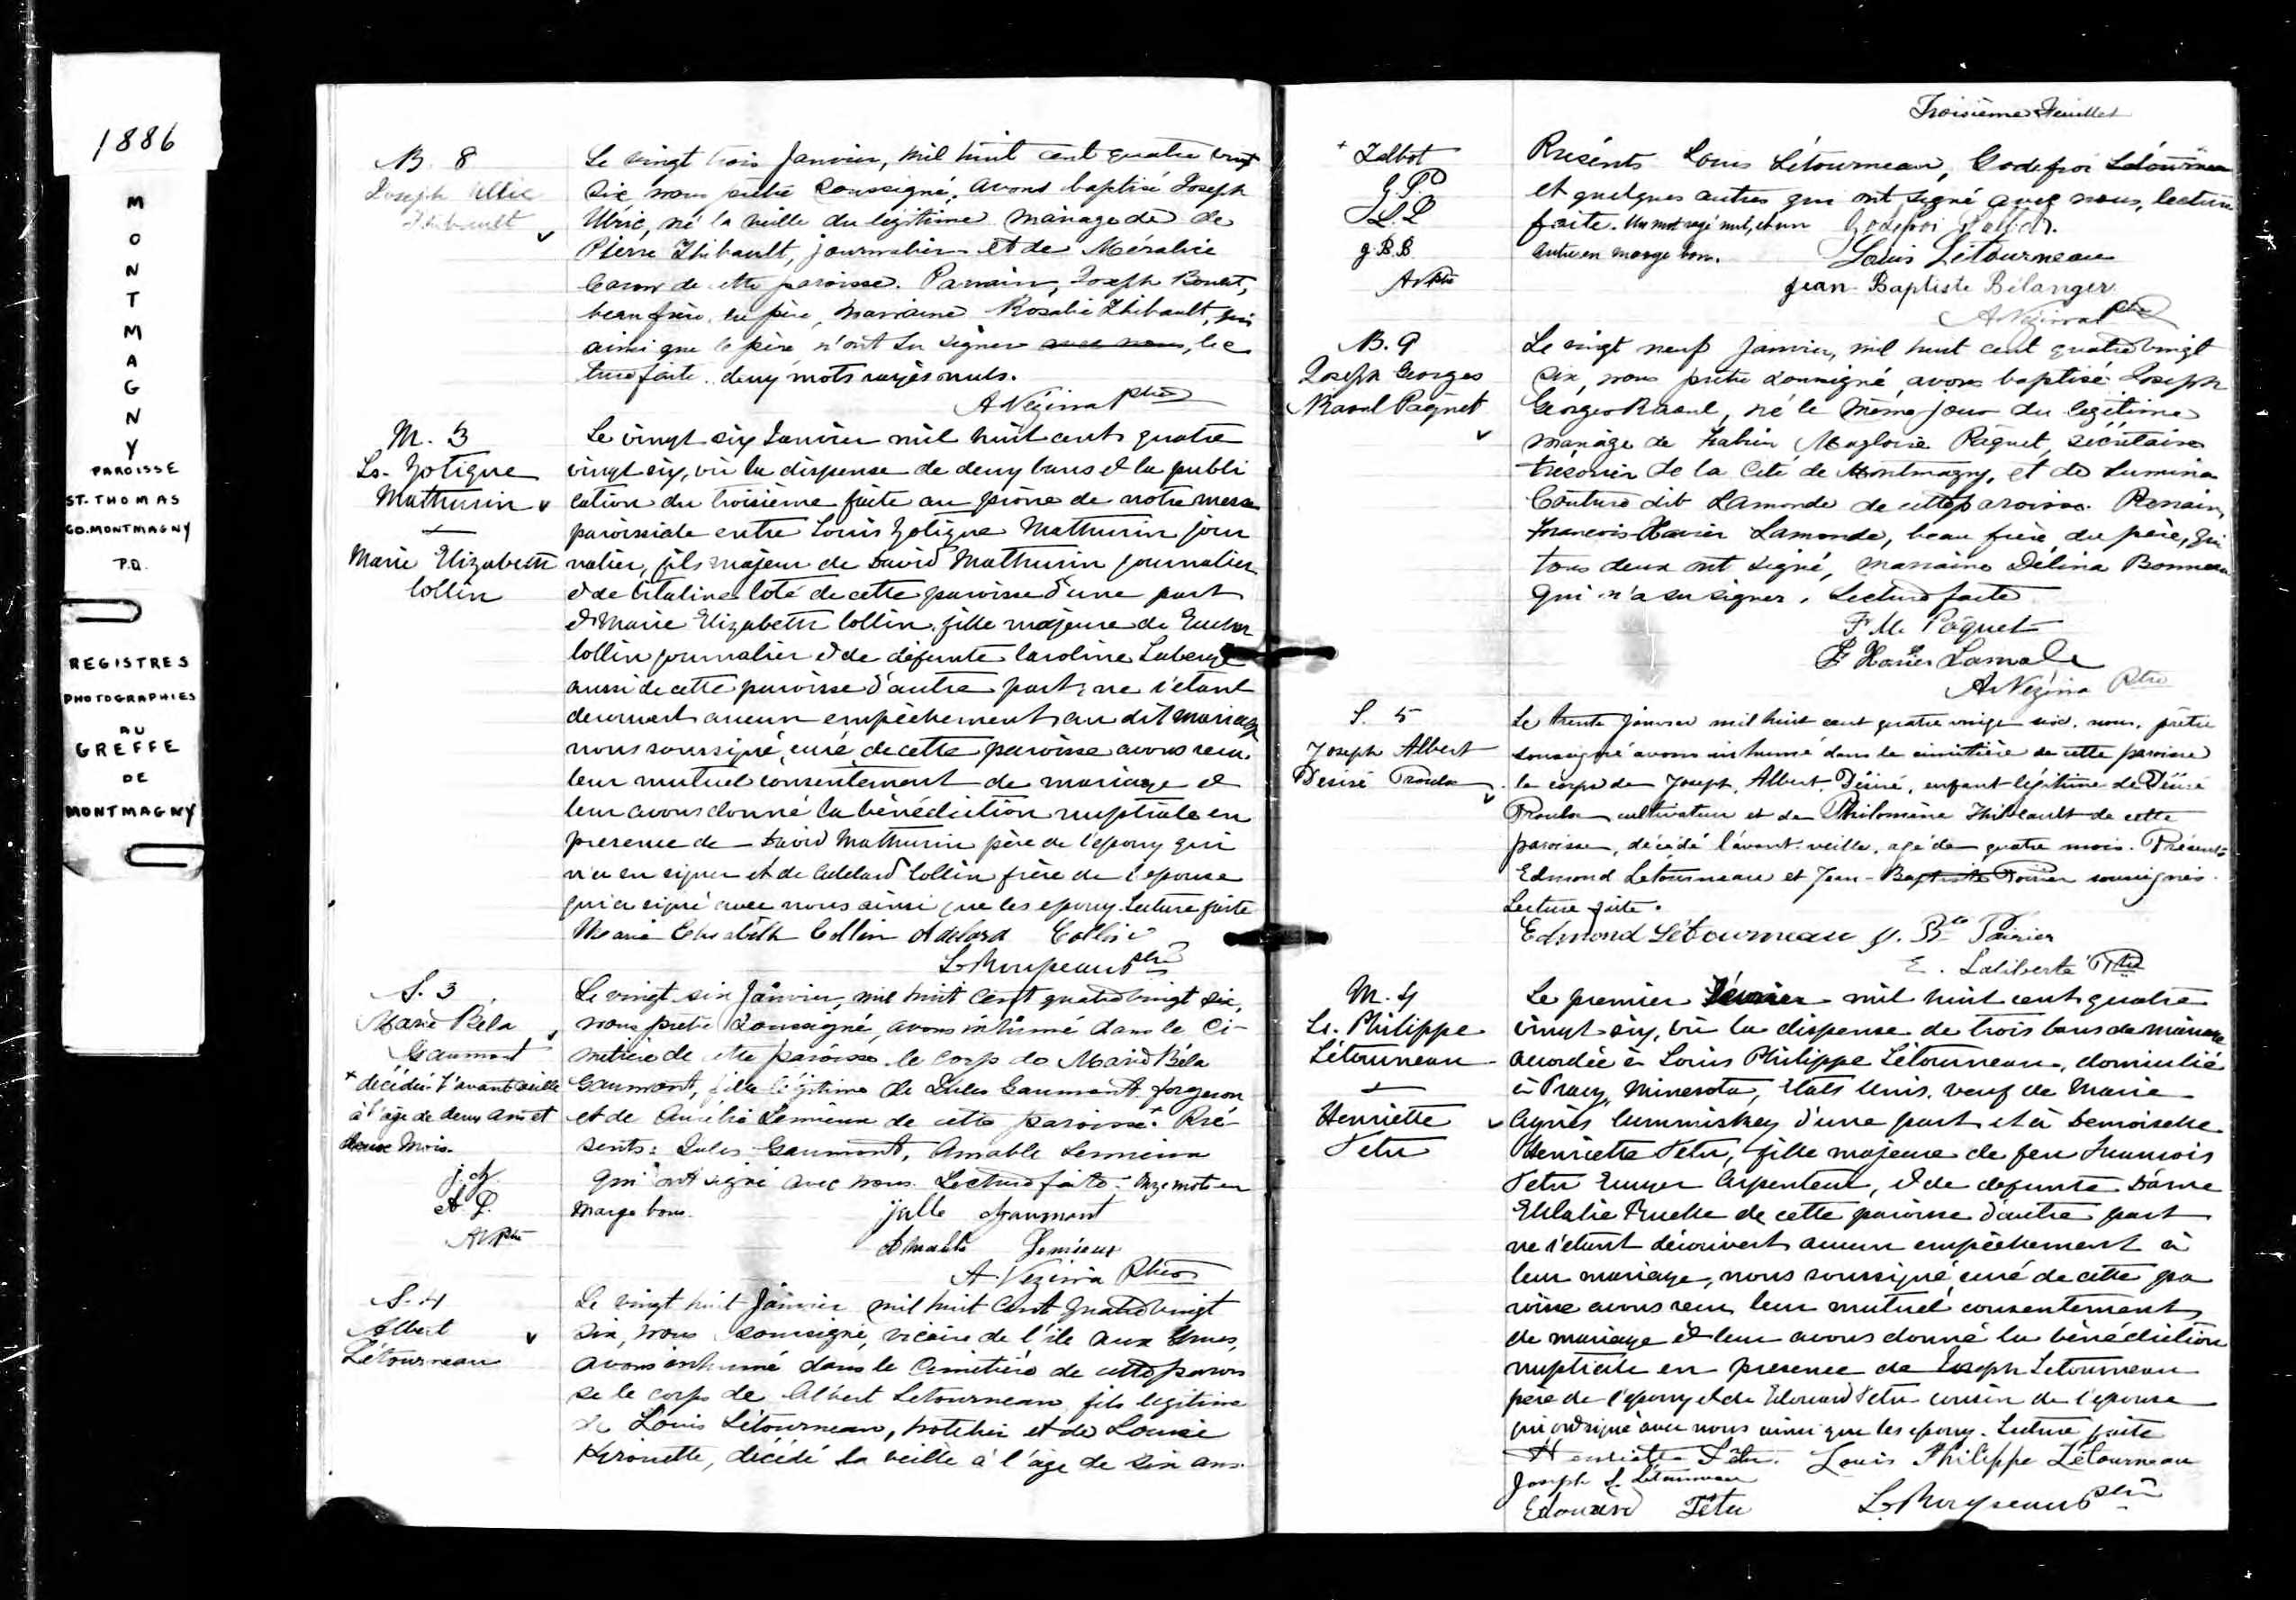 1886
MONTMAGNY
PAROISSE
ST. THOMAS
CO. MONTMAGNY
P.Q.
REGISTRES
PHOTOGRAPHIES
AU
GREFFE
DE
MONTMAGNY
B. 8
Joseph Ulric
Thibault
Le vingt trois Janvier, mil huit cent quatre vingt
six, nous prêtre soussigné, avons baptisé Joseph
Ulric, né la veille du légitime mariage de de
Pierre Thibault, journalier et de Méralice
Caron de cette paroisse. Parrain, Joseph Boulet,
beau frère du père, marraine Rosalie Thibault, qui
ainsi que le père n'ont su signer avec nous, lec
ture faite. deux mots rayés nuls.
A Vézina Ptre
M. 3
Ls. Zotique
Mathurin
Marie Elizabeth
Collin
Le vingt six Janvier mil huit cent quatre
vingt six, vu la dispense de deux bans et la publi
cation du troisième faite au prône de notre messe
paroissiale entre Louis Zotique Mathurin jour
nalier, fils majeur de David Mathurin journalier
et de Vitaline Coté de cette paroisse d'une part
et Marie Elizabeth Collin, fille majeure de
Collin journalier et de défunte Caroline Laberge
aussi de cette paroisse d'autre part, ne s'étant
découvert aucun empêchement au dit mariage
nous soussigné, curé de cette paroisse avons reçu
leur mutuel consentement de mariage et
leur avons donné la bénédiction nuptiale en
presence de David Mathurin père de l'époux qui
n'a su signer et de Adelard Collin frère de l'épouse
qui a signé avec nous ainsi que les epoux. Lecture faite
Marie Elisabeth Collin Adelard Collin
Ptre
S. 3
Marie Bela
Gaumont
+ décédée l'avant veille
à l'âge de deux ans et
mois.
j. g.
A. L.
AV Ptre
Le vingt six Janvier, mil huit cent quatre vingt six,
nous prêtre soussigné, avons inhumé dans le Ci-
metière de cette paroisse le corps de Marie Béla
Gaumont, fille légitime de Jules Gaumont forgeron
et de Aurélie Lemieux de cette paroisse. + Pré-
sents: Jules Gaumont, Amable Lemieux
qui ont signé avec nous. Lecture faite. Onze mots en
marge bons.
julle gaumont
Amable Lemieux
A. Vézina Ptre
S. 4
Albert
Létourneau
Le vingt huit Janvier mil huit cent quatre vingt
six, nous soussigné, vicaire de l'île aux Grues,
avons inhumé dans le Cimetière de cette parois
se le corps de Albert Letourneau, fils légitime
de Louis Létourneau, hotelier et de Louise
Kirouette, décédé la veille à l'âge de six ans.
Troisième Feuillet
+ Talbot
G. T.
L. L.
g. B. B.
AV Ptre
Présents Louis Létourneau, Godefroi Létourneau
et quelques autres qui ont signé avec nous, lecture
faite. Un mot rayé nul, et un Godefroi Talbot.
autre en marge bon. Louis Létourneau
Jean-Baptiste Bélanger
A Vézina Ptre
B. 9
Joseph Georges
Raoul Paquet
Le vingt neuf Janvier, mil huit cent quatre vingt
six, nous prêtre soussigné, avons baptisé Joseph
Georges Raoul, né le même jour du légitime
mariage de Magloire Paquet, secrétaire
trésorier de la Cité de Montmagny, et de Lumina
Couture dit Lamonde de cette paroisse. Parrain,
Francois-Xavier Lamonde, beau frère du père, qui
tous deux ont signé, marraine Délina Bonneau
qui n'a su signer. Lecture faite
F M. Paquet
F Xavier Lamonde
A Vézina Ptre
S. 5
Joseph Albert
Désiré Proulx
Le trente janvier mil huit cent quatre vingt six, nous, prêtre
soussigné avons inhumé dans le cimetière de cette paroisse
le corps de Joseph, Albert, Désiré, enfant légitime de Désiré
Proulx cultivateur et de Philomène Thibeault de cette
paroisse, décédé l'avant-veille, agé de quatre mois. Présents
Edmond Létourneau et Jean-Baptiste Poirier soussignés.
Lecture faite.
Edmond Létourneau J. Bte Poirier
E. Laliberté Ptre
M. 4
Ls. Philippe
Létourneau
Henriette
Tetu
Le premier Février mil huit cent quatre
vingt six, vu la dispense de trois bans de mariage
accordée à Louis Philippe Létourneau, domicilié
à Tracy, Minesota, Etats Unis, veuf de Marie
Agnès Cummiskey d'une part et à Demoiselle
Henriette Tetu, fille majeure de feu Francois
Tetu Ecuyer Arpenteur, et de defunte Dame
Eulalie Ruelle de cette paroisse d'autre part
ne s'étant découvert aucun empêchement à
leur mariage, nous soussigné curé de cette pa
roisse avons reçu leur mutuel consentement
de mariage et leur avons donné la bénédiction
nuptiale en presence de Joseph Letourneau
père de l'epoux et de Edouard Tetu cousin de l'epouse
qui ont signé avec nous ainsi que les epoux. Lecture faite
Henriette Têtu. Louis Philippe Létourneau
Joseph L. Létourneau
Edouard Têtu
Ptre